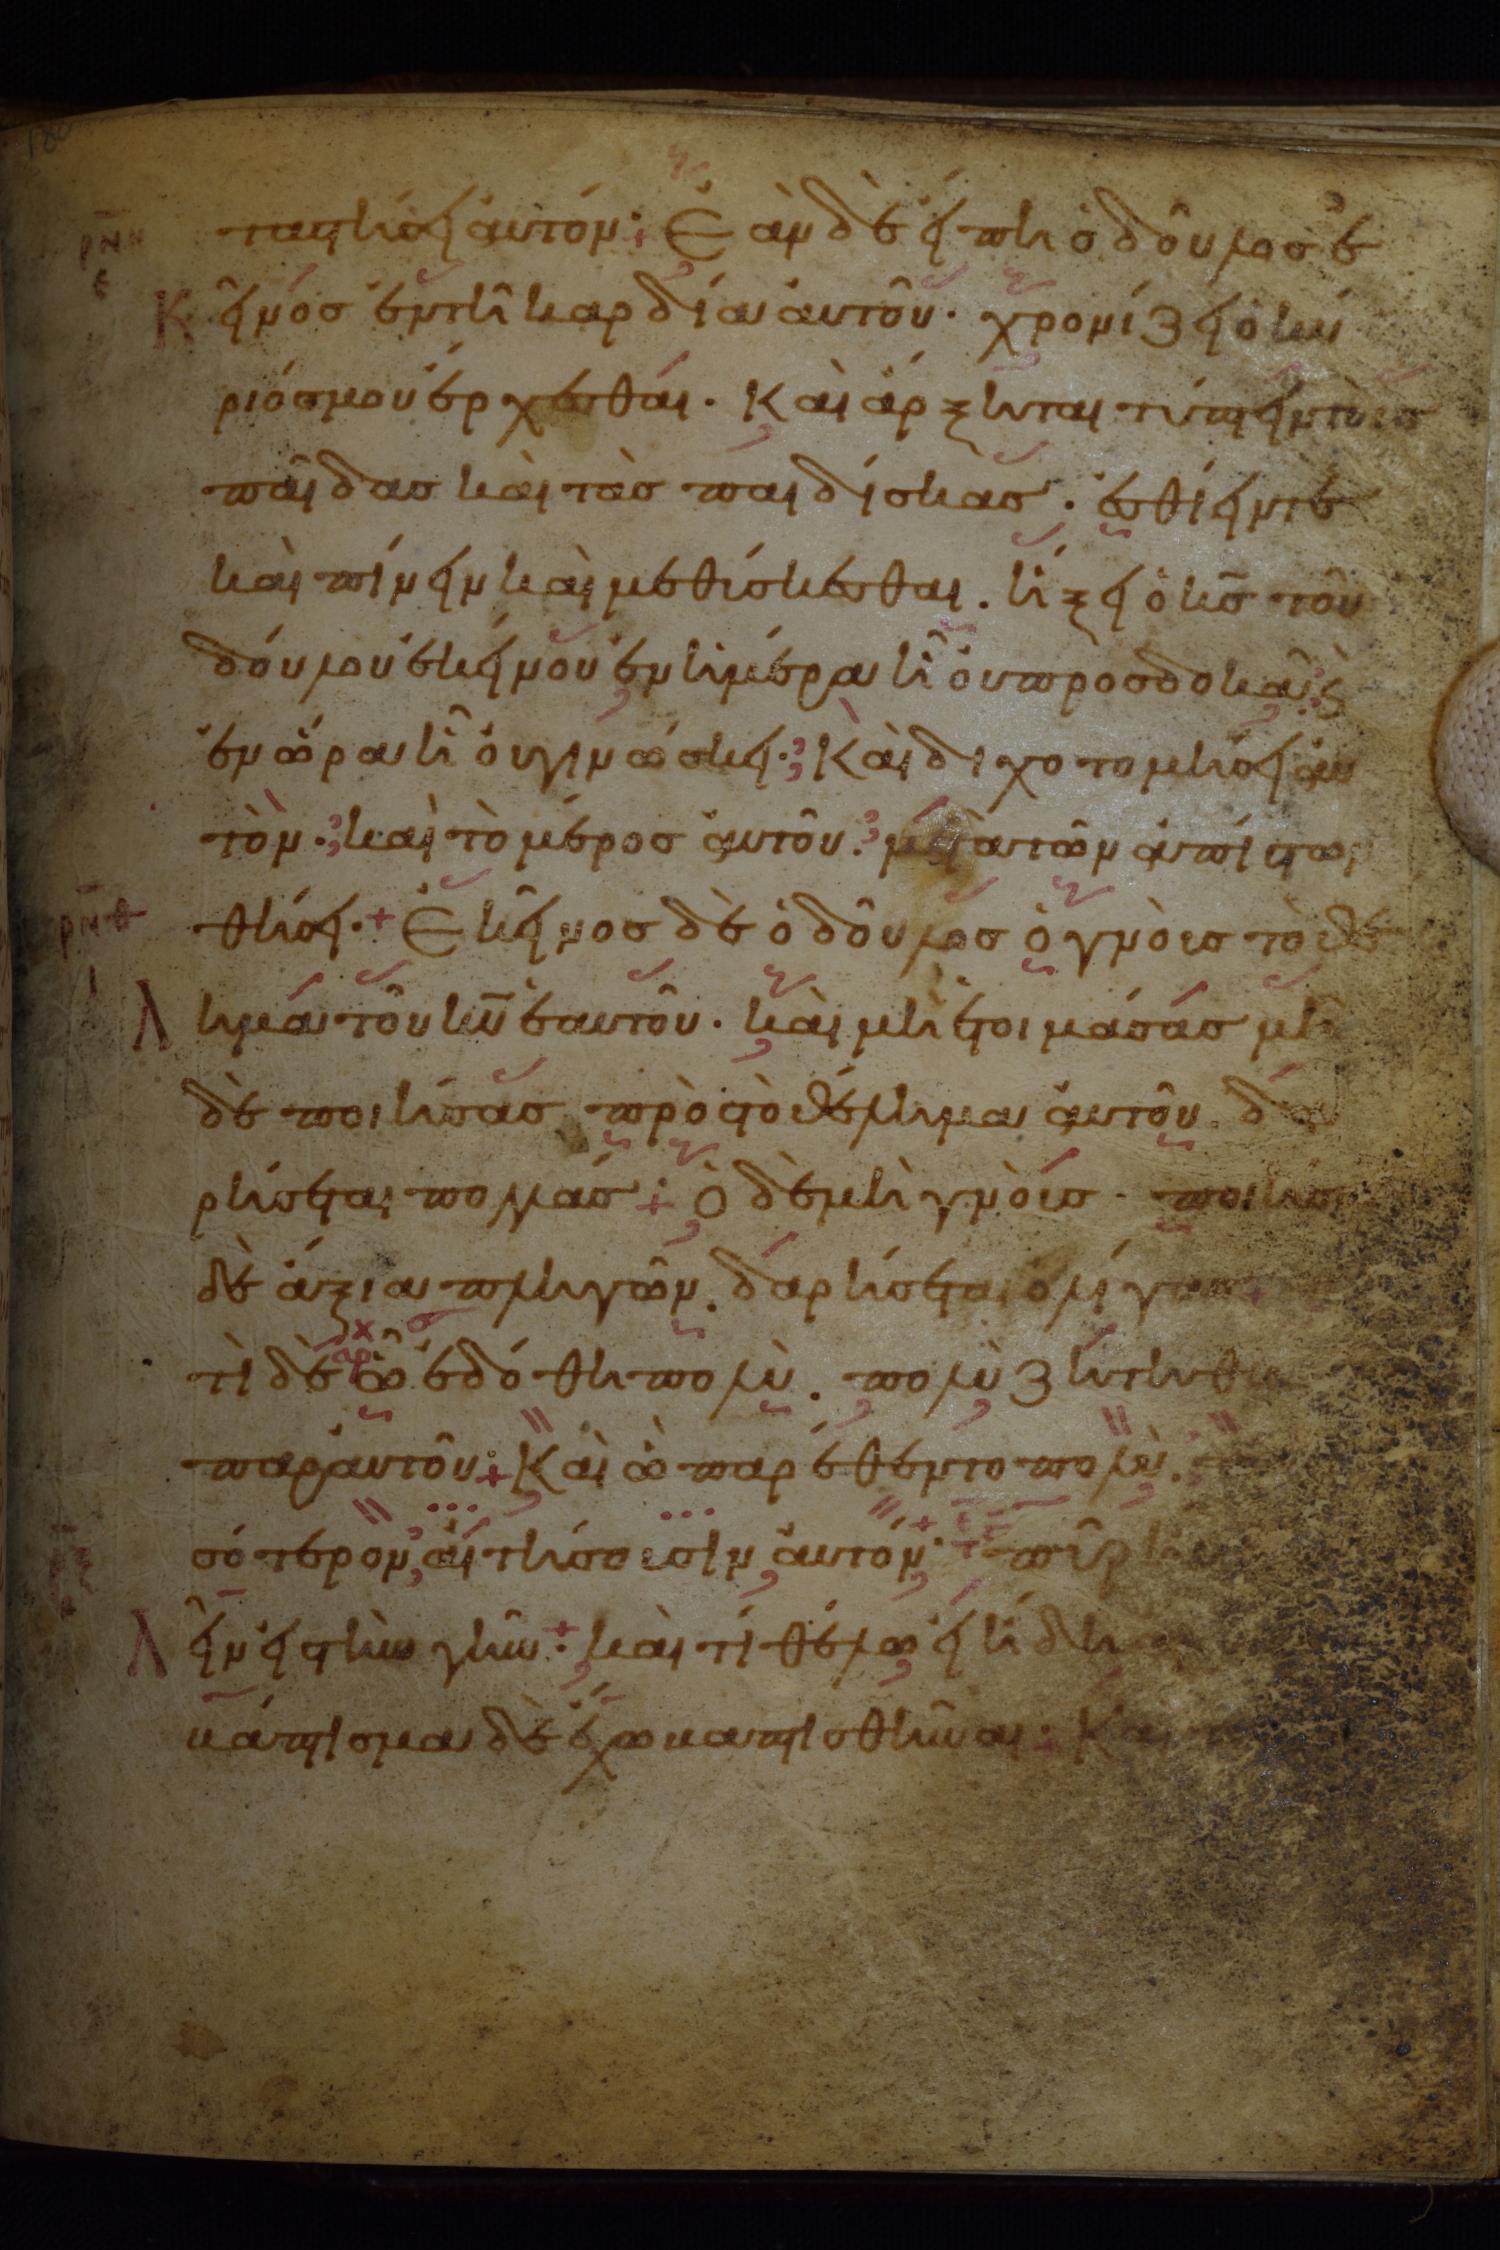 ταστήσει ἀυτόν· Ἐὰν δὲ εἴπη ὁ δοῦλος ἐ
κεῖνος ἐν τῆ καρδία αὐτοῦ· χρονίζει ὁ κύ
ριός μου ἔρχεσθαι· Καὶ ἄρξηται τύπτειν τοὺς
παῖδας καὶ τὰς παιδίσκας· ἐσθίειν τὲ
καὶ πίνειν καὶ μεθύσκεσθαι. ἥξει ὁ κ̅σ̅ τοῦ
δούλου ἐκείνου ἐν ἡμέρα ἧ οὐ προσδοκᾶ κ̀
ἐν ὥρα ἧ οὐ γινώσκει· Καὶ διχοτομήσει ἀυ
τὸν· καὶ τὸ μέρος ἀυτοῦ. μετὰ τῶν ἀπίστων
θήσει· Ἐκεῖνος δὲ ὁ δοῦλος ὁ γνοὺς τὸ θέ
λημα τοῦ κ̅υ̅ ἑαυτοῦ· καὶ μὴ ἑτοιμάσας μη
δὲ ποιήσας πρὸς τὸ θέλημα ἀυτοῦ δα
ρήσεται πολλάς· Ὁ δὲ μὴ γνοὺς· ποιήσ
δὲ ἄξια πληγῶν. δαρήσεται ὀλίγας
τὶ δὲ ὧ ἐδόθη πολὺ. πολὺ ζητηθη
παρ' ἀυτοῦ· Καὶ ὧ παρέθεντο πολὺ.
σότερον ἀιτήσουσιν ἀυτόν· πῦρ
λεῖν εἰς τὴν γῆν· καὶ τί θέλω εἰ ἤδη
βάπτισμα δὲ ἔχω βαπτισθῆναι· Καὶ